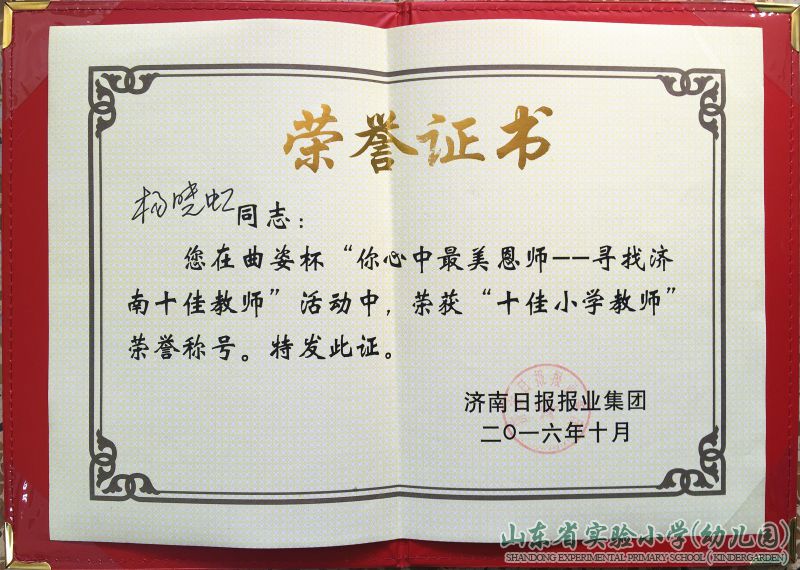 荣誉证书
杨晓虹同志：
您在曲姿杯“你心中最美恩师——寻找济
南十佳教师”活动中，荣获“十佳小学教师”
荣誉称号。特发此证。
济南日报报业集团
二〇一六年十月
山东省实验小学(幼儿园)
SHANDONG EXPERIMENTAL PRIMARY SCHOOL (KINDERGARDEN)